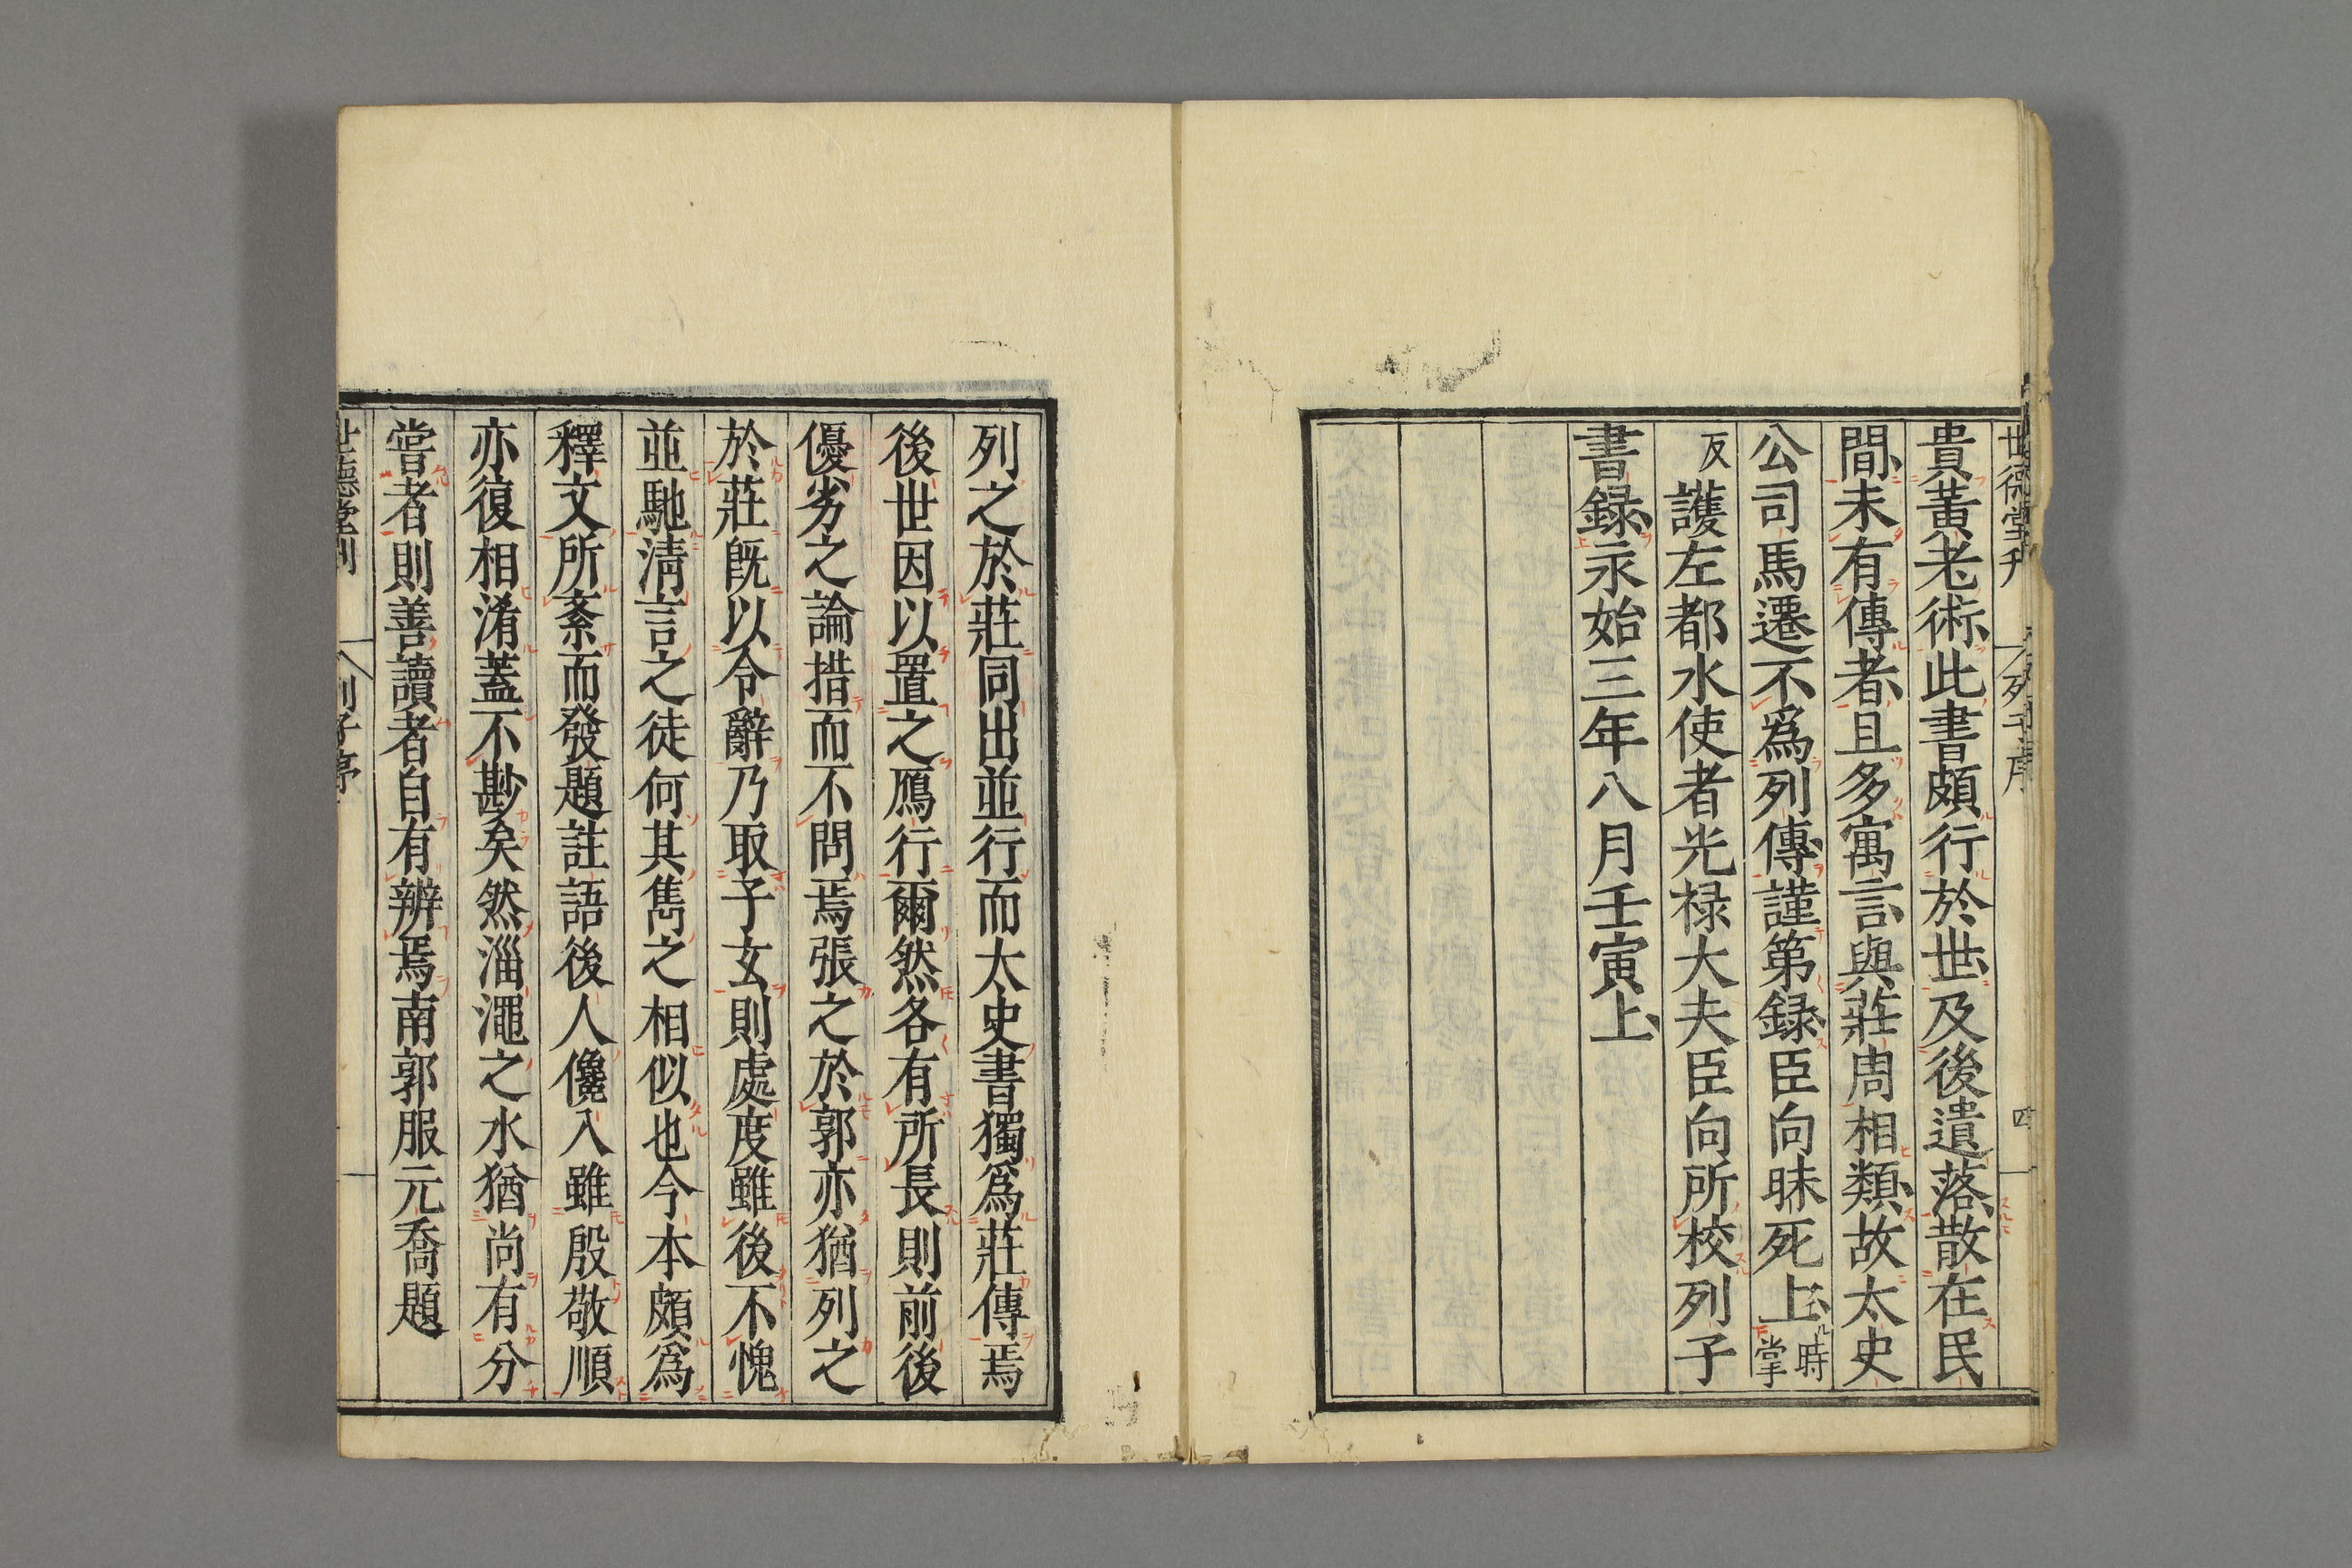 世德堂刊 列子序 四
貴黃老術此書頗行於世及後遺落散在民
間未有傳者且多寓言與莊周相類故太史
公司馬遷不爲列傳謹第録臣向昧死上時掌
反護左都水使者光禄大夫臣向所校列子
書録永始三年八月壬寅上
列之於莊同出並行而太史書獨爲莊傳焉
後世因以置之鴈行爾然各有所長則前後
優劣之論措而不問焉張之於郭亦猶列之
於莊旣以令辭乃取子玄則處度雖後不愧
並馳淸言之徒何其雋之相似也今本頗爲
釋文所紊而發題註語後人儳入雖殷敬順
亦復相淆蓋不尠矣然淄澠之水猶尚有分
甞者則善讀者自有辨焉南郭服元喬題
世德堂刊 列子序